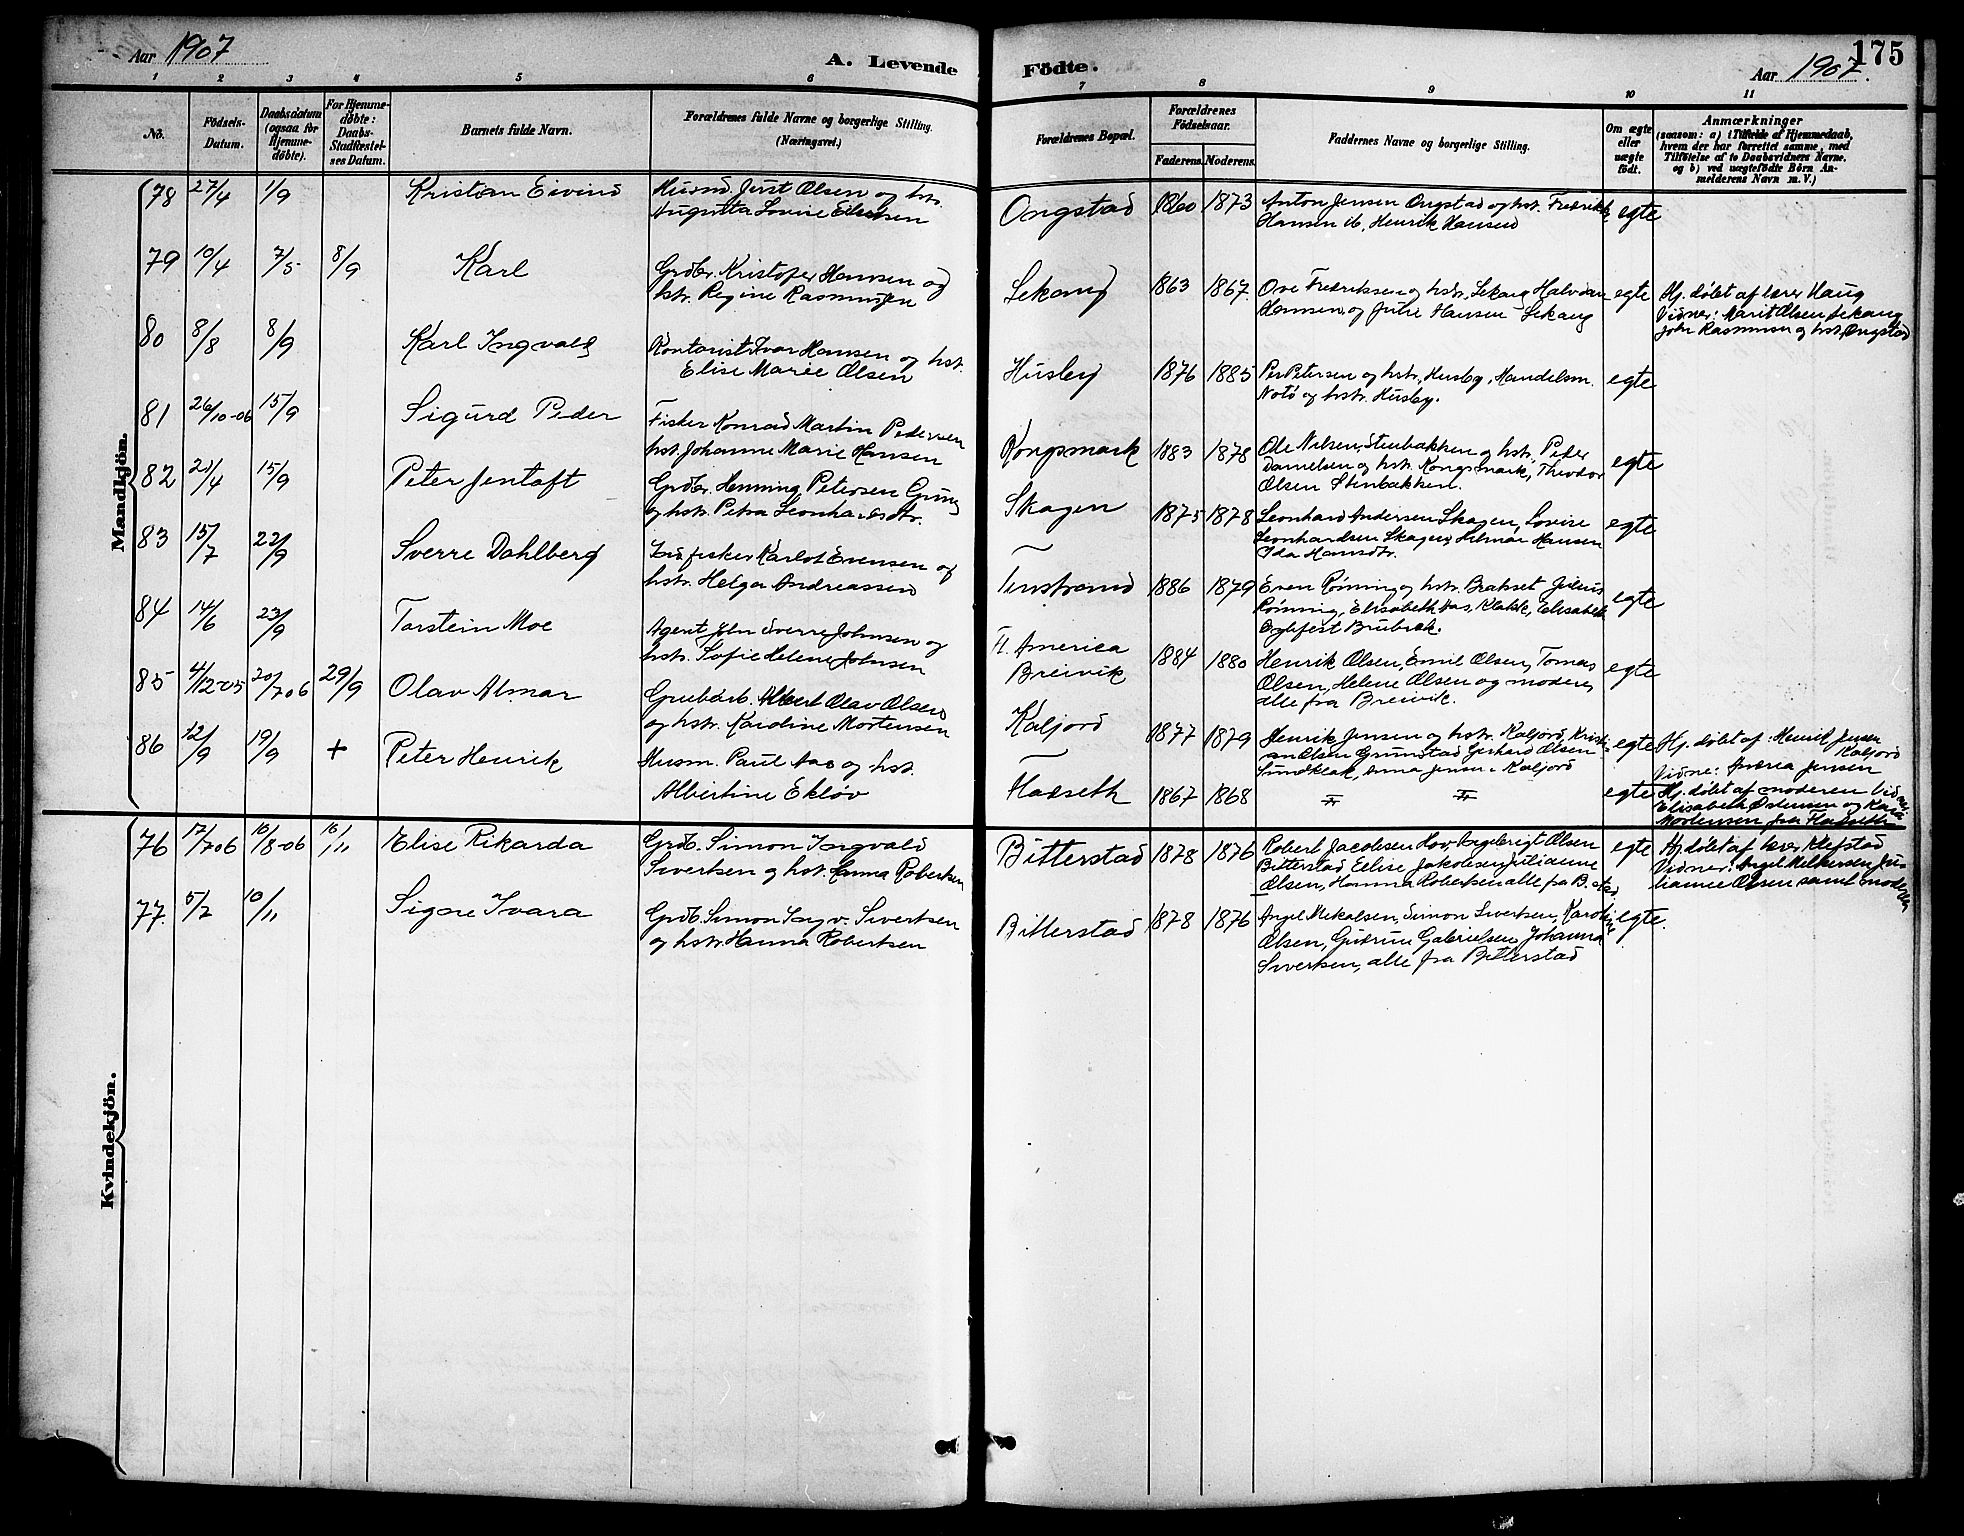 Aar 1907
A. Levende
1 2 3 4 5 6
No.
Födsels-
Datum.
Daabsdatum
(ogsaa for
Hjemme-
døbte).
For Hjemme-
døbte:
Daabs-
Stadfæstel-
ses Datum.
Barnets fulde Navn.
Forældrenes fulde Navne og borgerlige Stilling.
(Næringsvei.)
Mandkjön.
78 27/4 1/9 Kristian Eivind
Husmd. Just Olsen og hst.
Augusta Lovise
79 10/4 7/5 8/9 Karl
Grdbr. Kristofer Hansen og
hst. Regine Rasmussen
80 8/8 8/9 Karl Ingvald
Kontorist Ivar Hansen og hst.
Elise Marie Olsen
81 26/10-06 15/9 Sigurd Peder
Fisker Konrad Martin Pedersen
hst. Johanne Marie Hansen
82 21/4 15/9 Peter Jentoft
Grdbr. Henning Petersen
og hst. Petra Leonhardsdtr.
83 15/7 22/9 Sverre Dahlberg
fisker Karlot Evensen og
hst. Helga Andreassen
84 14/6 23/9 Torstein Moe
Agent John Sverre Johnsen og
hst. Sofie Helene Johnsen
85 4/12-05 20/7 06 29/9 Olav Almar
Grubearb. Albert Olav Olsen
og hst. Karoline Mortensen
86 12/9 19/9 + Peter Henrik
Husm. Paul Aas og hst.
Albertine Ekløv
Kvindekjön.
76 17/7 06 16/8-06 16/11 Elise Rikarda
Grdb. Simon Ingvald
Sivertsen og hst. Hanna Robertsen
77. 5/7 10/11 Signe Ivara
Grdb. Simon Ingv. Sivertsen
og hstr Hanna Robertsen
175
Födte.
Aar 1907.
7 8 9 10 11
Forældrenes Bopæl.
Forældrenes
Födselsaar.
Faderens. Moderens.
Faddernes Navne og borgerlige Stilling.
Om ægte
eller
uægte
födt.
Anmærkninger
(saasom: a) i Tilfælde af Hjemmedaab,
hvem der har forrettet samme, med
Tilföielse af to Daabsvidners Navne.
og b) ved uægtefödte Börn An-
melderens Navn m. V.)
Ongstad 1860 1873 Anton Jensen Ongstad og hst. Fredrik
Hansen ib, Henrik Hansen
egte
Sekang 1863 1867. Ove Fredriksen og hstr. Sekang Halvdan
Hansen og Julie Hansen Sekang
egte
Hj. døbt af lærer Haug
Vidner: Marit Olsen Sekang
John Rasmussen og hst. Ongstad
Husby 1876 1885 Per Petersen og hstr. Husby, Handelsm.
Notø og hstr. Husby.
egte
Kongsmark 1883 1878 Ole Nilsen, Stenbakken og hst. Peder
Danielsen og hst. Kongsmark, Theodor
Olsen Stenbakken.
egte
Skagen 1875 1878 Leonhard Andersen Skagen, Lovise
Leonhardsen Skagen, Hilmar Hansen
Ida Hansdtr.
egte
1886 1879 Even Rønning og hstr. Julius
Rønning, Elisabeth Aas, Elisabeth
egte
N. America
Breivik 1884 1880 Henrik Olsen, Emil Olsen, Tomas
Olsen, Helene Olsen og moderen
alle fra Breivik.
egte
Kaljord 1877 1879 Henrik Jensen og hstr. Kaljord, Kristi-
an Olsen Grunstad Gerhard Olsen
Sundklak, Anna Jensen Kaljord
egte
Hj. døbt af Henrik Jensen
Kaljord
Vidne: Andrea Jensen
Hadseth 1867 1868
egte
Hj. døbt af moderen Vidner
Elisabeth Østensen og
Mortensen fra Hadseth
Bitterstad 1878 1876 Robert Jacobsen Hov, Ingebrigt Olsen
Bitterstad Elise Jakobsen Julianne
Olsen, Hanna Robertsen alle fra B.stad
egte
Hj. døbt af lærer Klefstad
Vidner: Angel Melkersen Ju-
lianne Olsen samt moderen
Bitterstad 1878 1876 Angel Mikalsen, Simon Sivertsen, Karoline
Olsen, Gudrun Gabrielsen, Johanna
Sivertsen, alle fra Bitterstad
egte.